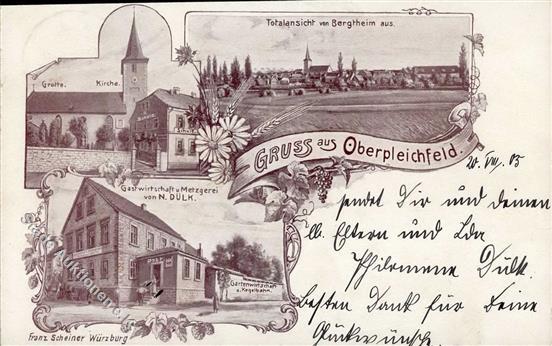 Totalansicht von Bergtheim aus.
Grotte. Kirche.
Schule.
GRUSS aus Oberpleichfeld.
20. VIII. 05
Gastwirtschaft u. Metzgerei
von N. DÜLK.
Gartenwirtschaft
u. Kegelbahn.
sendet Dir und deinen
lb. Eltern und Ida
Philomena Dülk.
Besten Dank für Deine
Glückwünsche.
Franz Scheiner Würzburg